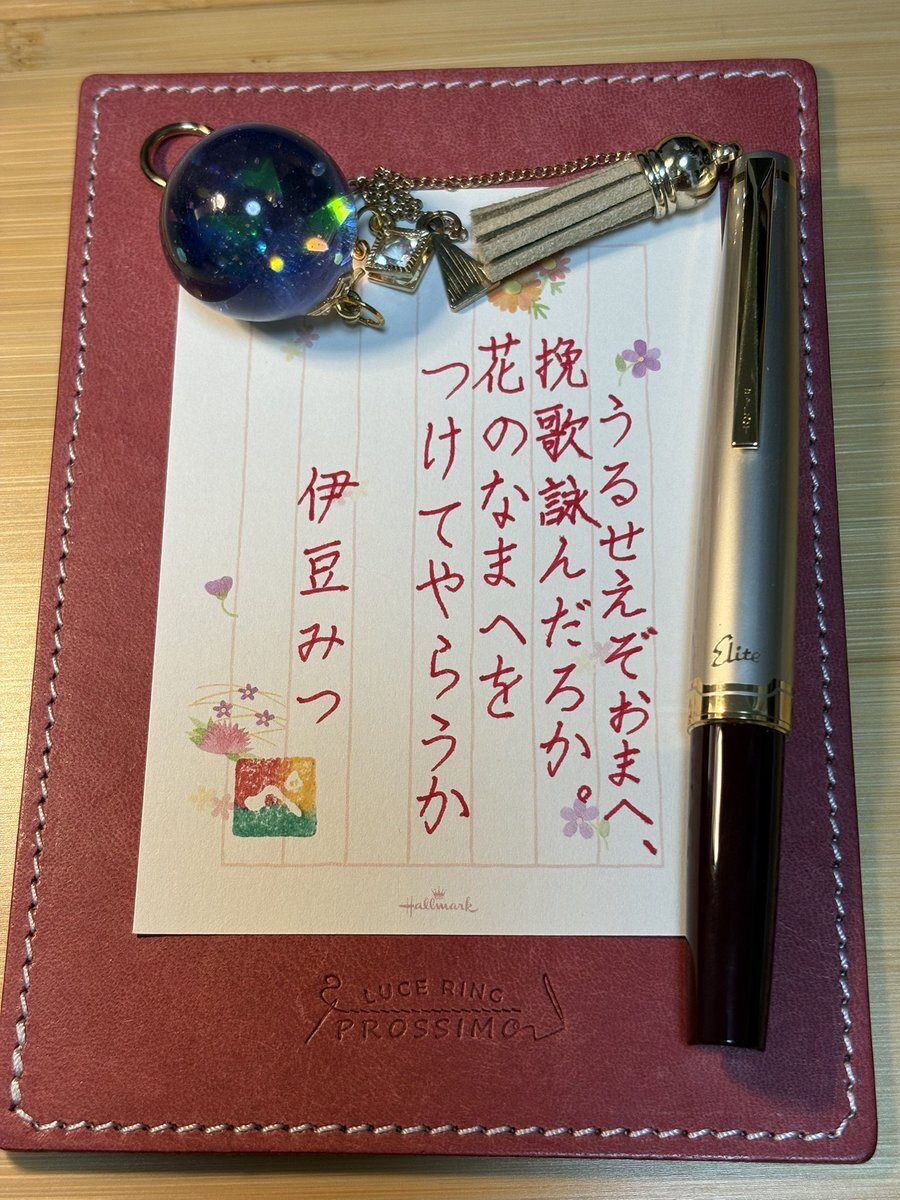 うるせえぞおまへ、
挽歌詠んだろか。
花のなまへを
つけてやらうか
伊豆みつ
Hallmark
Elite
PILOT
LUCE RING
PROSSIMO